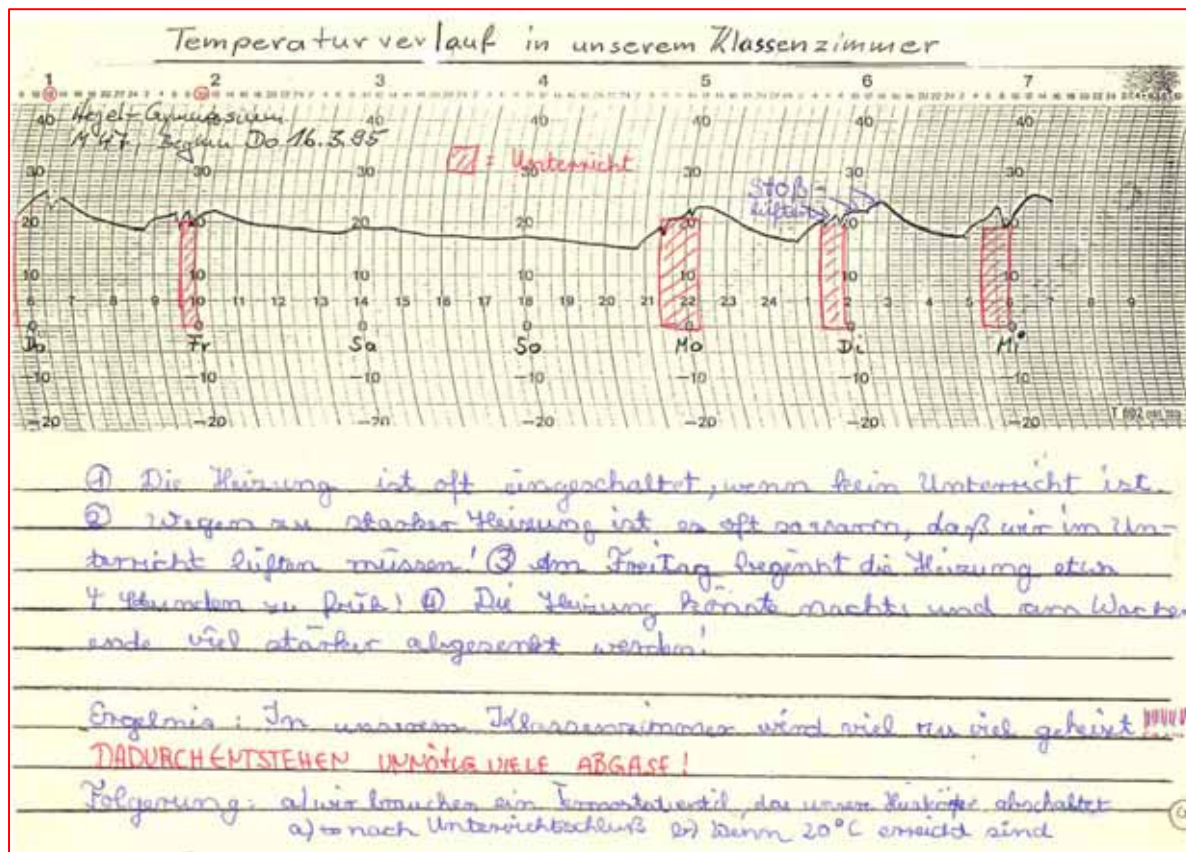 Temperaturverlauf in unserem Klassenzimmer
1 2 3 4 5 6 7
Hegel-Gymnasium
40 40 40 40
M 47, Beginn Do 16.3.95
= Unterricht
Stoß-
lüften
30 30 30 30 30 30 30
20 20 20 20 20 20
10 10 10 10 10 10 10
6 7 8 9 10 11 12 13 14 15 16 17 18 19 20 21 22 23 24 1 2 3 4 5 6 7 8 9
0 0 0 0 0 0 0
Do Fr Sa So Mo Di Mi
-10 -10 -10 -10 -10 -10 -10
-20 -20 -20 -20 -20 -20 -20
① Die Heizung ist oft eingeschaltet, wenn kein Unterricht ist.
② Wegen zu starker Heizung ist es oft so warm, daß wir im Un-
terricht lüften müssen! ③ Am Freitag beginnt die Heizung etwa
4 Stunden zu früh! ④ Die Heizung könnte nachts und am Wochen
ende viel stärker abgesenkt werden!
Ergebnis: In unserem Klassenzimmer wird viel zu viel geheizt!!!!!!
DADURCH ENTSTEHEN UNNÖTIG VIELE ABGASE!
Folgerung: a) wir brauchen ein Termostatventil, das unsere Heizkörper abschaltet
a) nach Unterrichtschluß b) wenn 20°C erreicht sind